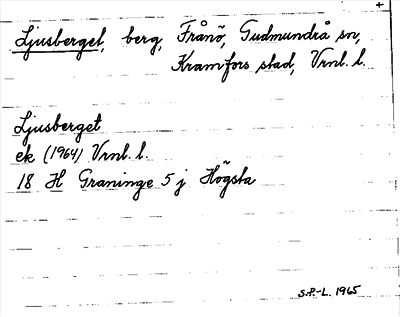 Ljusberget, berg, Frånö, Gudmundrå sn,
Kramfors stad, Vrnl. l.
Ljusberget
ek (1964) Vrnl. l.
18 H Graninge 5 j Högsta
S.P.-L. 1965